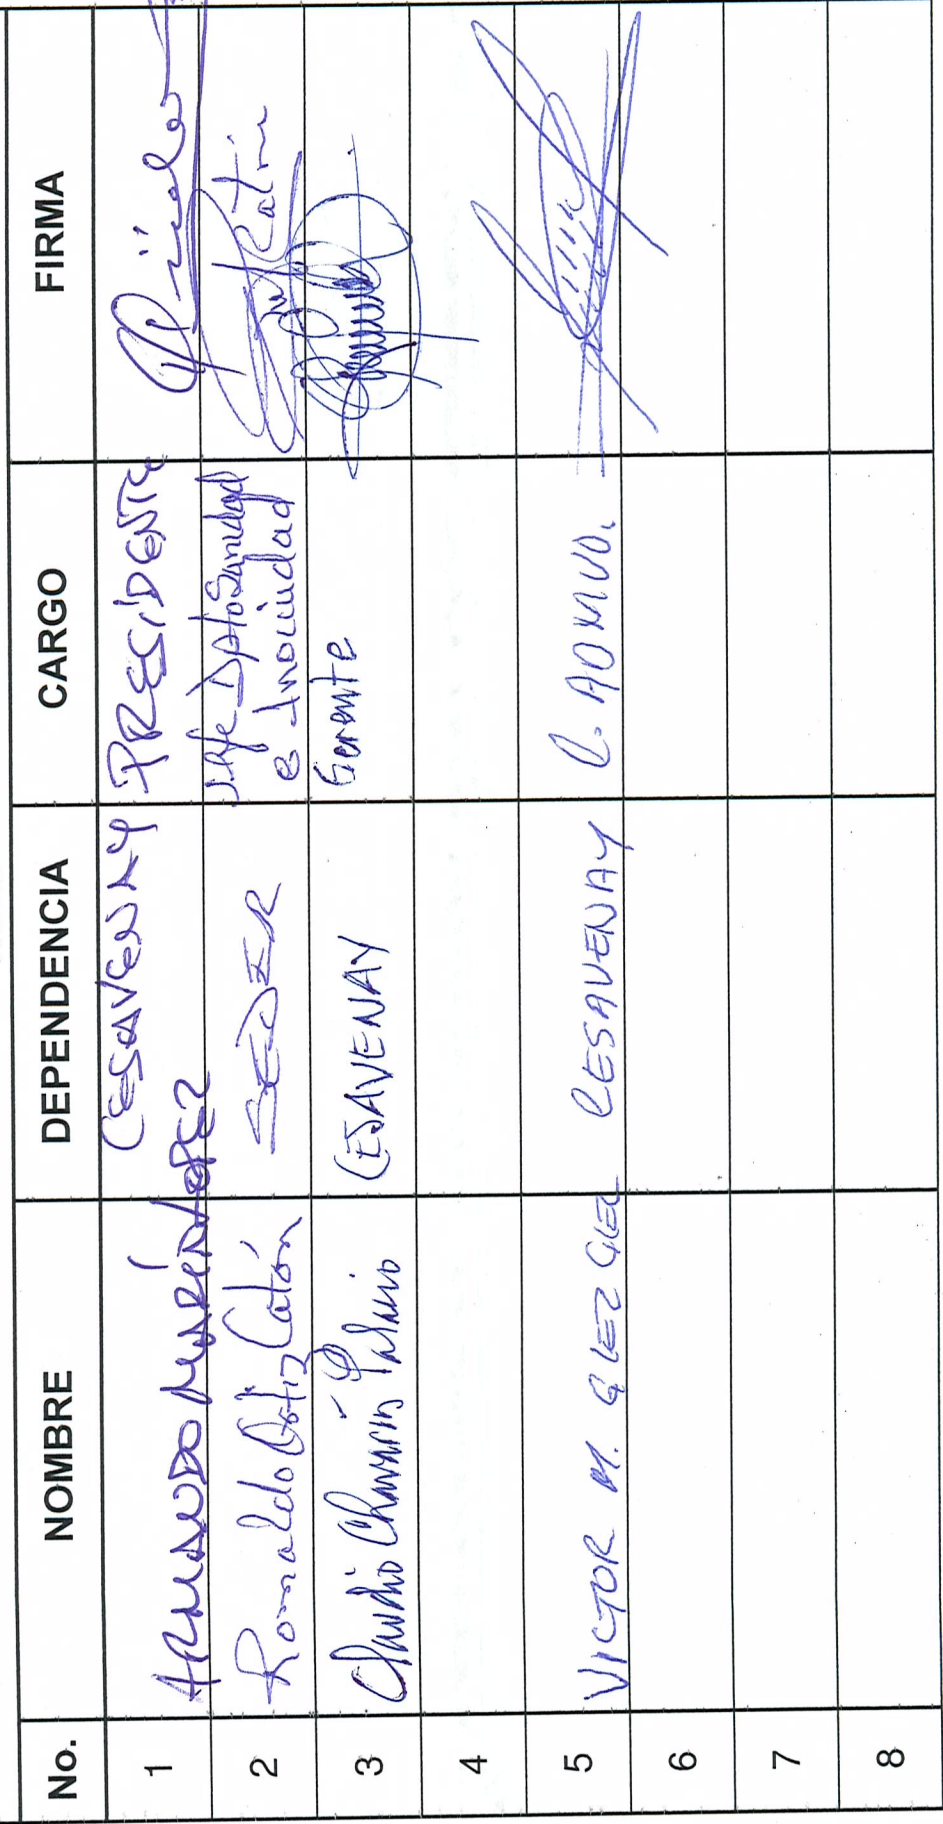 No. NOMBRE DEPENDENCIA CARGO FIRMA
1 ARMANDO MARÍN LOPEZ CESAVENAY PRESIDENTE
2 Romaldo Ortiz Catón SEDER Jefe DPto Sanidad
e Inocuidad Catón
3 Claudio Chavarin Palacio CESAVENAY Gerente
4
5 VICTOR M. GLEZ GLEZ CESAVENAY C. ADMVO.
6
7
8